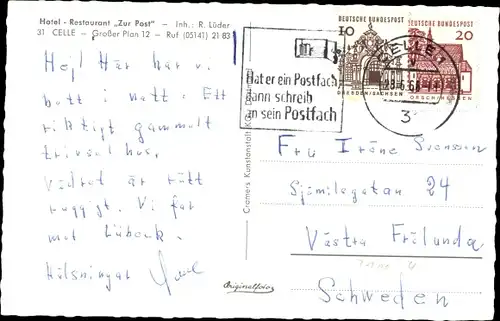 Hotel - Restaurant „Zur Post" - Inh.: R. Lüder
31 CELLE - Großer Plan 12 - Ruf (05141) 21 83
Hej! Här har vi
bott i natt. Ett
riktigt gammalt
trivsel hus.
Vädret är rätt
ruggigt. Vi far
mot Lübeck.
Hälsningar
Cramers Kunstanstalt KG, Dortmund
Originalfoto
Hat er ein Postfach
dann schreib
an sein Postfach
CELLE 1
3
10
DRESDEN/SACHSEN
20
LORSCH/HESSEN
Fru Iréne Svensson
Sjömilegatan 24
Västra Frölunda
Schweden